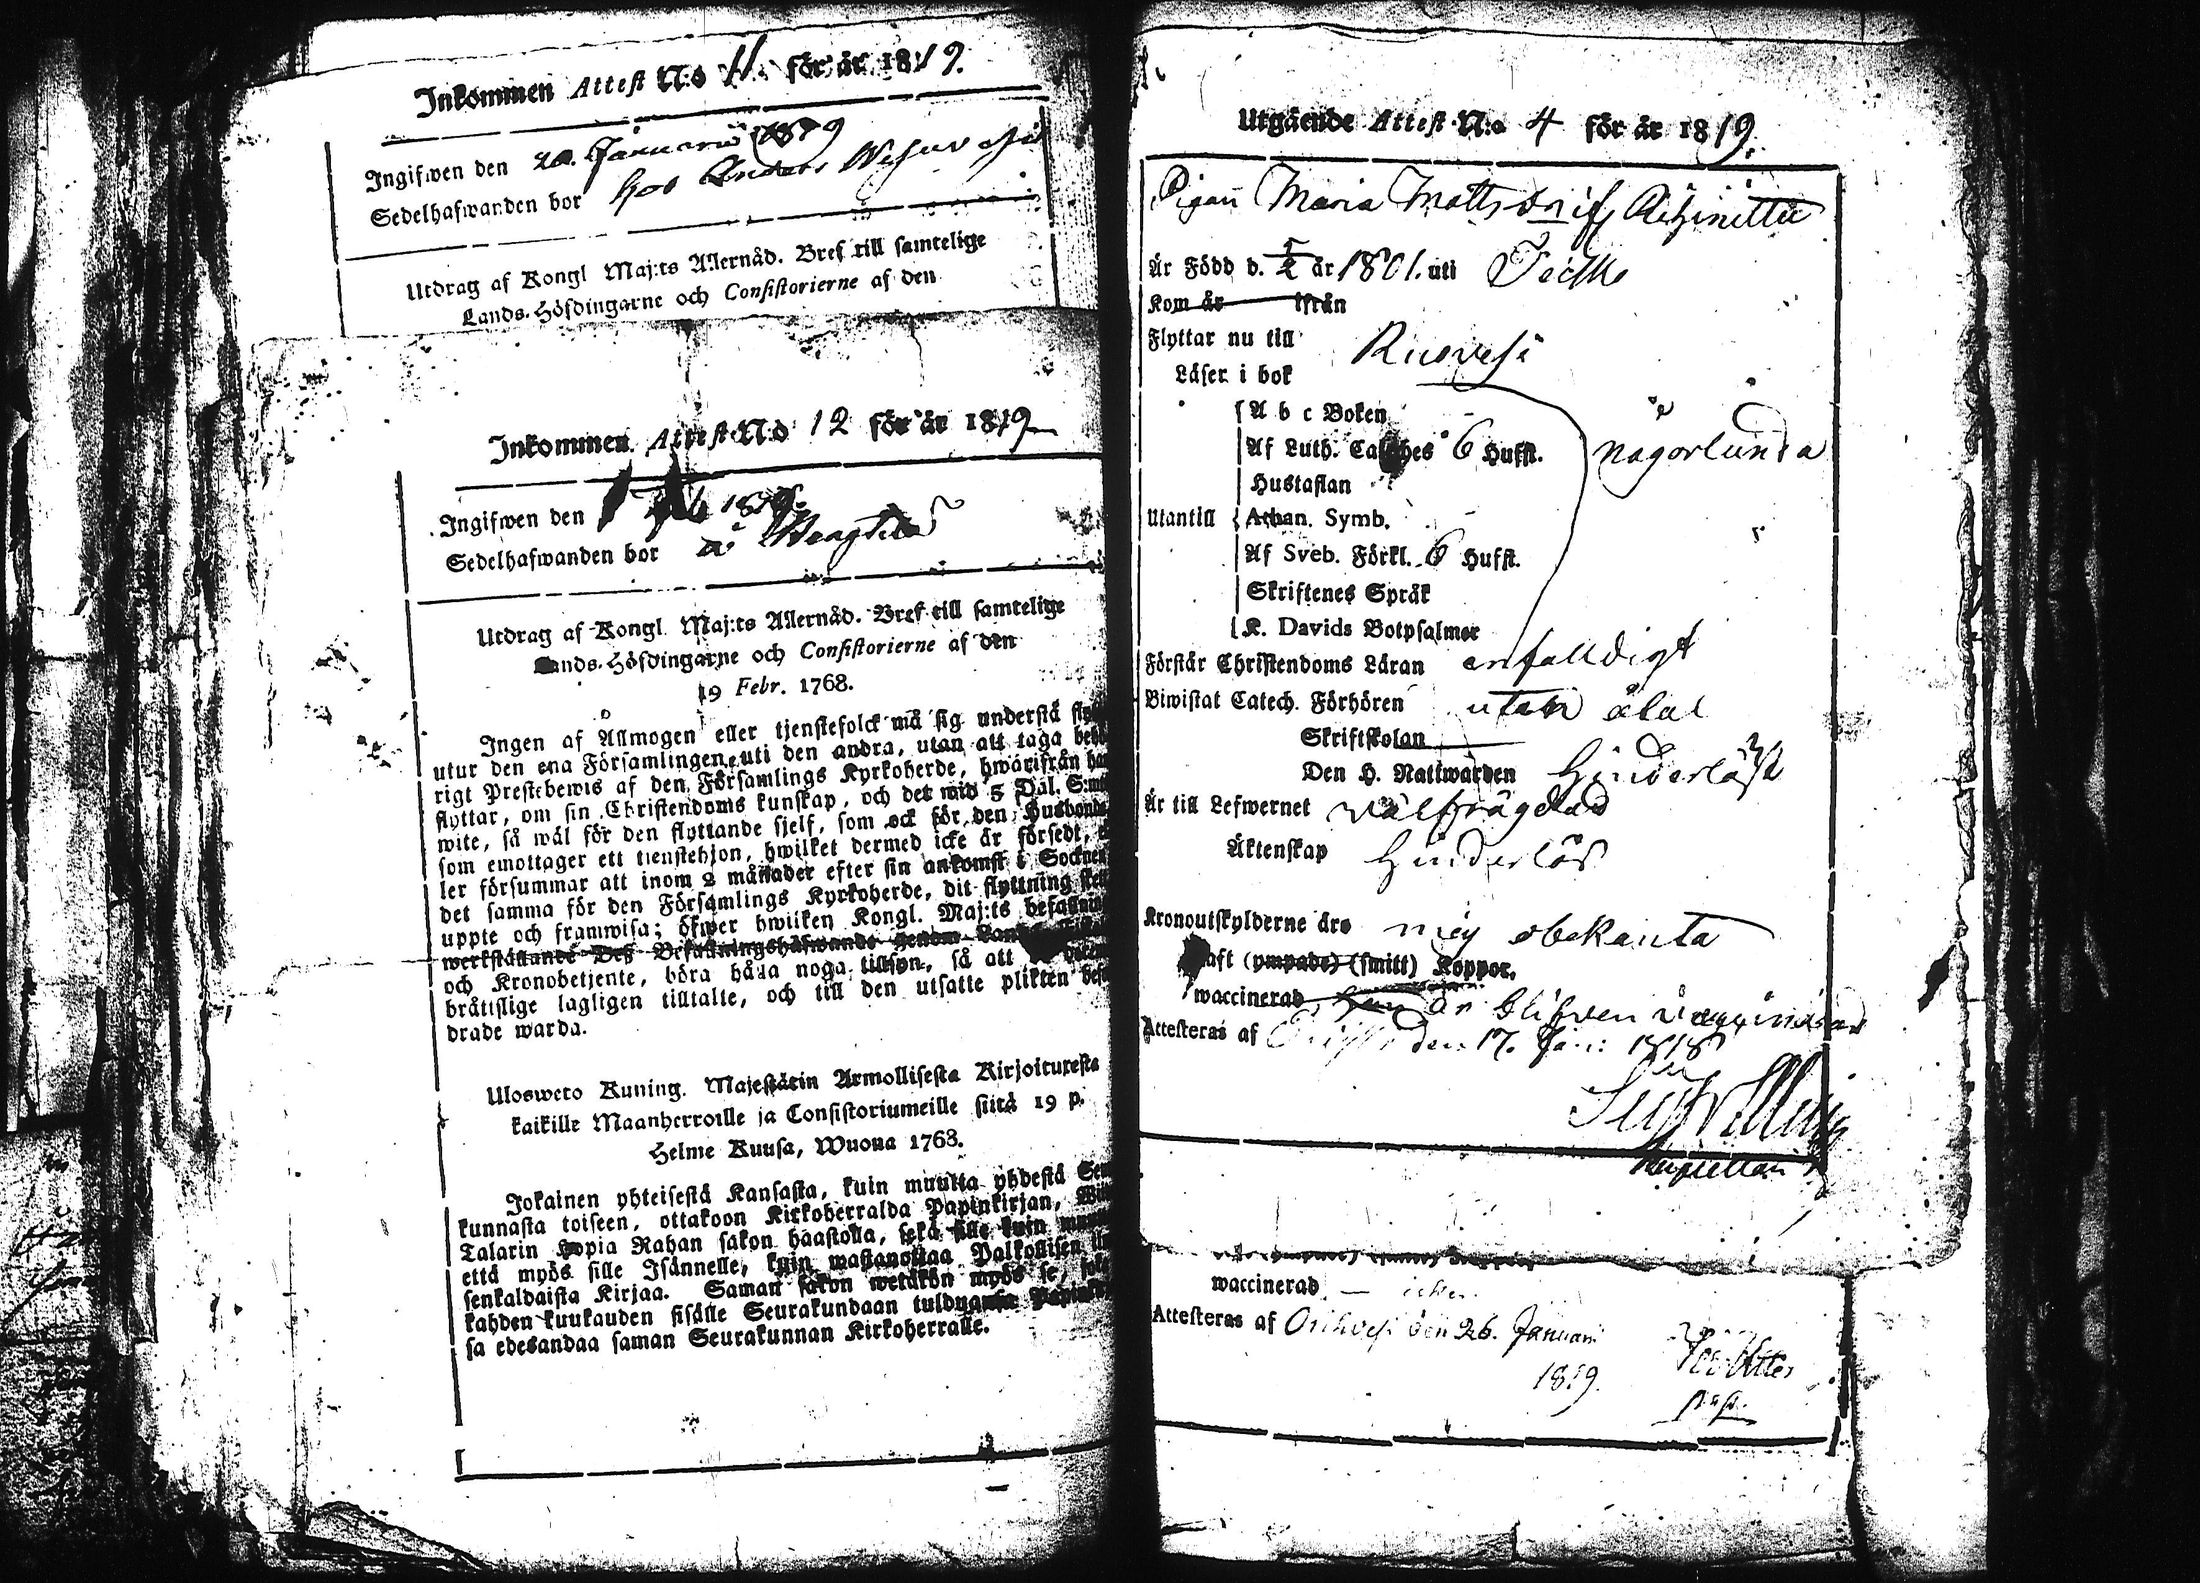 Inkommen Attest N:o 11. för år 1819.
Ingifwen den 20. Januarii 1819
Sedelhafwanden bor hos Anders
Utdrag af Kongl Maj:ts Allernåd. Bref till samtelige
Lands-Höfdingarne och Consistorierne af den
Inkommen Attest N:o 12 för år 1819
Ingifwen den 1819.
Sedelhafwanden bor å
Utdrag af Kongl Maj:ts Allernåd. Bref till samtelige
Lands-Höfdingarne och Consistorierne af den
19 Febr. 1768.
Ingen af Allmogen eller tjenstefolck må sig understå
utur den ena Församlingen uti den andra, utan att taga
rigt Prestebewis af den Församlings Kyrkoherde, hwarifrån
flyttar, om sin Christendoms kunskap, och det wid 5 Dal. S:mt
wite, så wäl för den flyttande sjelf, som ock för den Husbonde
som emottager ett tienstehjon, hwilket dermed icke är försedt,
ler försummar att inom 2 månader efter sin ankomst i
det samma för den Församlings Kyrkoherde, dit flyttning
uppte och framwisa; öfwer hwilken Kongl. Maj:ts
werkställande Deß Befallningshafwande genom
och Kronobetjente, böra hålla noga tillsyn, så att
bråtislige lagligen tilltalte, och till den utsatte plikten
drade warda.
Uloswcto Kuning. Majestätin Armollisesta Kirjoituxesta
kaikille Maanherroille ja Consistoriumeille siitä 19 p.
Helme Kuusa, Wuona 1768.
Jokainen yhteisestä Kansasta, kuin muutta yhdestä
kunnasta toiseen, ottakoon Kirkoherralda Papinkirjan,
Talarin Hopia Rahan sakon haastolla, sekä sille kuin
että myös sille Isännelle, kuin wastanottaa Palkollisen
senkaldaista Kirjaa. Saman sakon wetäkön myös se,
kahden kuukauden sisälle Seurakundaan tulduansa
sa edesandaa saman Seurakunnan Kirkoherralle.
Utgående Attest N:o 4 för år 1819.
Pigan Maria Mattsdr
Är Född d. 5/2 år 1801. uti
Kom år ifrån
Flyttar nu till Ruovesi
Läser i bok
A b c Boken
Af Luth. Catches 6 Hufst. någorlunda
Hustaflan
Utantill Athan. Symb.
Af Sveb. Förkl. 6 Hufst.
Skriftenes Språk
K. Davids Botpsalmer
Förstår Christendoms Läran enfalldigt
Biwistat Catech. Förhören utan
Skriftskolan
Den H. Nattwarden Hinderlöst
Är till Lefwernet wälfrägdad
Äktenskap Hinderlös
Kronoutskylderne äro mig obekanta
Haft (ympade) (smitt) Koppor.
waccinerad är blifven
Attesteras af den 17. Jan: 1818
Capellan
waccinerad — icke.
Attesteras af Orihvesi den 26. Januari
1819.